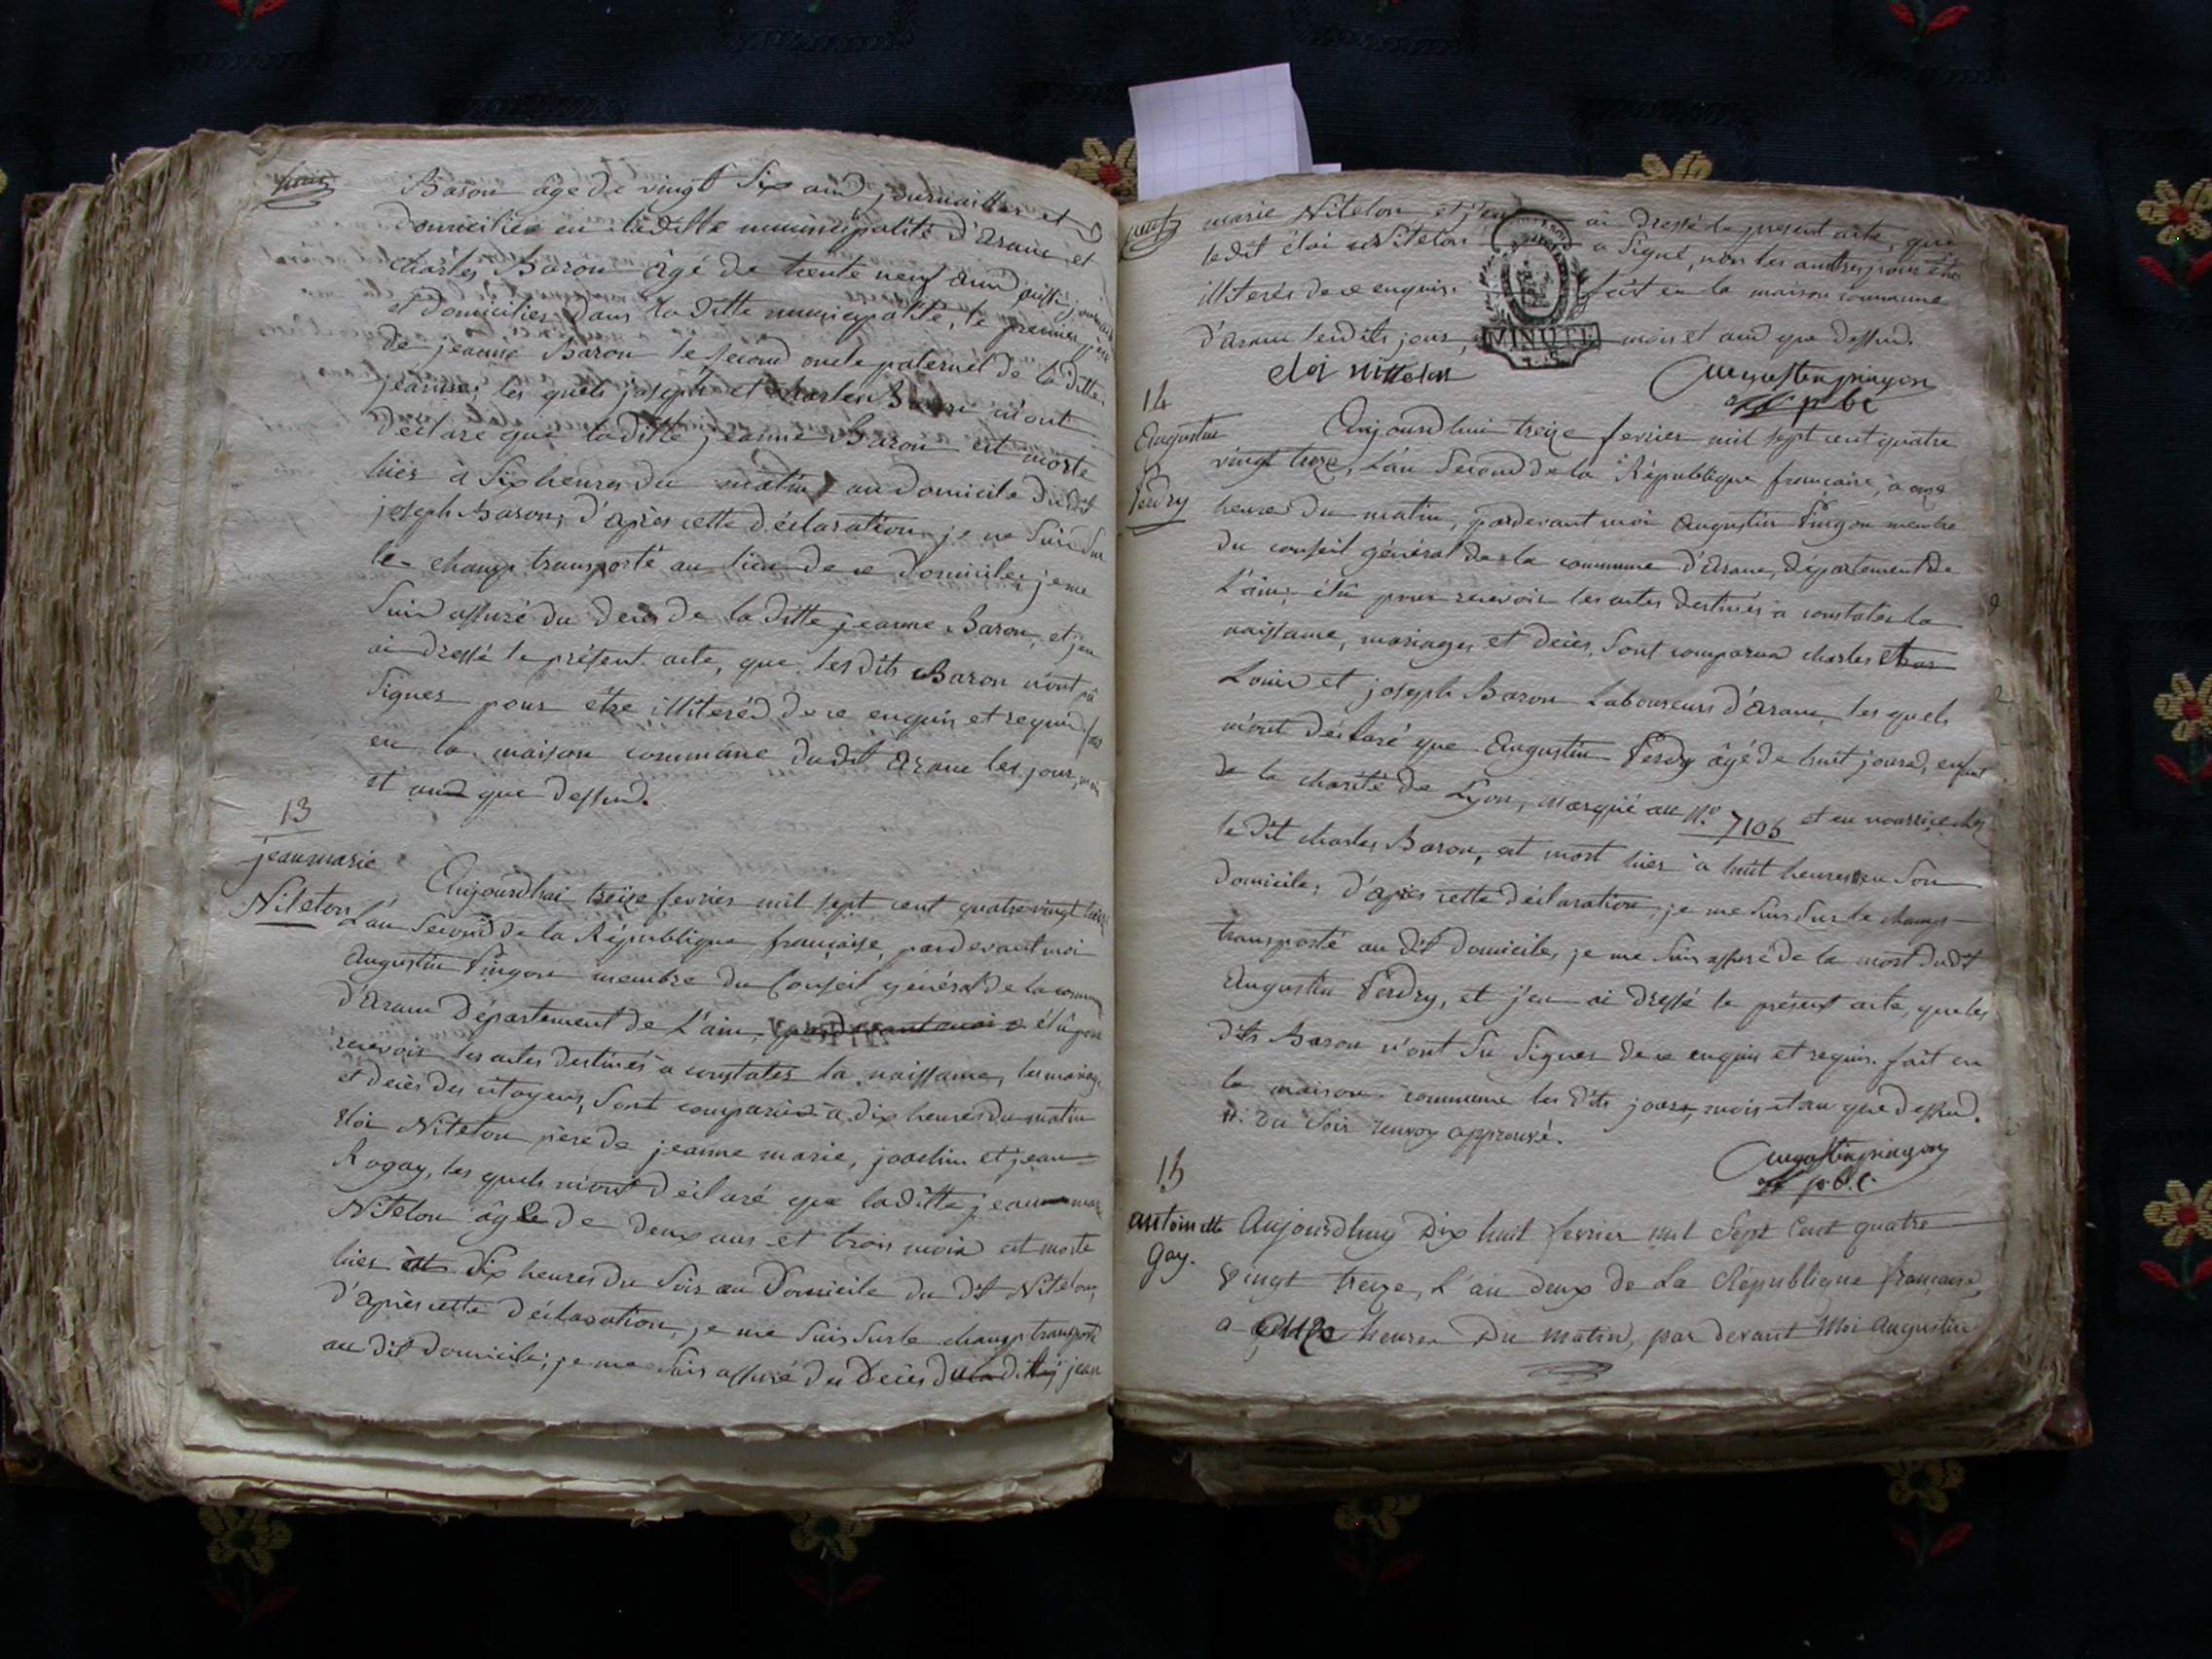 Baron âgé de vingt six ans journaillier et
domiciliés en la ditte municipalité d'aranc, et
charles Baron âgé de trente neuf ans aussi
et domicilier dans la ditte municipalité, le premier père
de jeanne Baron le second oncle paternel de la ditte
jeanne; les quels joseph et charles Baron m'ont
déclaré que la ditte jeanne Baron est morte
hier à six heures du matin au domicile dudit
joseph Baron; d'après cette déclaration je me suis sur
le champ transporté au lieu de ce domicile; je me
suis assuré du décès de la ditte jeanne Baron, et j'en
ai dressé le présent acte, que les dits Baron n'ont pû
signer pour être illiterés de ce enquis et requis. fait
en la maison commune dudit aranc les jour, mois
et ans que dessus.
13
jeanmarie
Niteton
Aujourdhui treize fevrier mil sept cent quatre vingt treize
L'an second de la République française, pardevant moi
augustin Pingon membre du Conseil général de la commune
d'aranc Département de L'ain, pardevant moi élû pour
recevoir les actes destinés à constater la naissance, les mariages
et décès des citoyens, sont comparus à dix heures du matin
éloi Niteton père de jeanne marie, joachim et jean
Rogay, les quels m'ont déclaré que la ditte jean marie
Niteton âgé de deux ans et trois mois est morte
hier dix heures du soir au Domicile du dit Niteton,
d'après cette déclaration, je me suis sur le champ transporté
au dit domicile; je me suis assuré du Décès du dit jean
marie Niteton et j'en ai dressé le present acte, que
le dit éloi Niteton a signé, non les autres pour être
illiterés de ce enquis. fait en la maison commune
d'aranc les dits jour, mois et ans que dessus.
MINUTE
eloi nitteton
augustin pingon
p b c
14
Augustin
Perdry
Aujourdhui treize fevrier mil sept cent quatre
vingt treze, L'an second de la République francaise, à onze
heures du matin, pardevant moi augustin Pingon membre
du conseil général de la commune d'aranc, département de
L'ain; élû pour recevoir les actes destinés à constater la
naissance, mariages et décès, sont comparus charles
Louis et joseph Baron Laboureurs d'aranc, les quels
m'ont déclaré que Augustin Perdry âgé de huit jours, enfant
de la charité de Lyon, marqué au N.o 7105 et en nourrice chez
le dit charles Baron, est mort hier à huit heures en son
domicile; d'après cette déclaration, je me suis sur le champ
transporté au dit domicile, je me suis assuré de la mort dudit
Augustin Perdry, et j'en ai dressé le présent acte, que les
dits Baron n'ont su signer de ce enquis et requis. fait en
la maison commune les dits jours, mois et an que dessus.
du soir renvoy approuvé.
augustin pingon
p. b. c.
15
antoinette
Gay.
Aujourdhuy Dix huit fevrier mil Sept Cent quatre
Vingt treize, L'an deux de La République francaise,
a heures Du matin, par devant Moi augustin